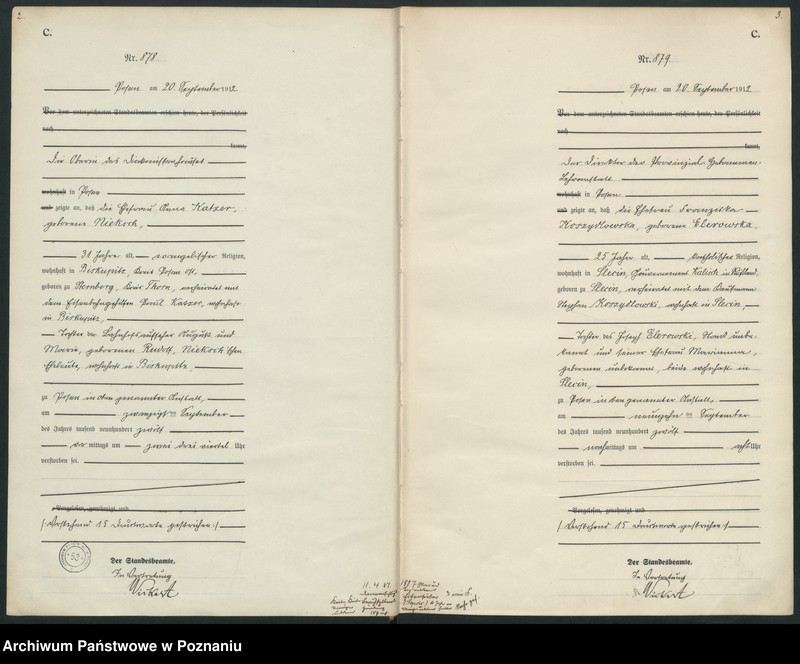 2.
C.
Nr. 878
Posen am 20. September 1912
Vor dem unterzeichneten Standesbeamten erschien heute, der Persönlichkeit
nach
kannt,
Die Oberin des Diakonissenhauses
wohnhaft in Posen
und zeigte an, daß die Ehefrau Anna Katzer,
geborene Niekoch,
31 Jahre alt, evangelischer Religion,
wohnhaft in Biskupitz, Kreis Posen Ost.
geboren zu Sternberg, Kreis Thorn, verheiratet mit
dem Eisenbahngehilfen Paul Katzer, wohnhaft
in Biskupitz,
Tochter der Bahnhofsaufseher August und
Marie, geborenen Rudolf, Niekoch'schen
Eheleute, wohnhaft in Biskupitz,
zu Posen in der genannter Anstalt,
am zwanzigsten September
des Jahres tausend neunhundert zwölf
vormittags um zwei drei viertel Uhr
verstorben sei.
Vorgelesen, genehmigt und
/: Vorstehend 15 Druckworte gestrichen :/
Der Standesbeamte.
In Vertretung
Nickert
52
11. 4. 87.
3.
C.
Nr. 879
Posen am 20. September 1912
Vor dem unterzeichneten Standesbeamten erschien heute, der Persönlichkeit
nach
kannt,
Der Direktor der Provinzial-Hebammen-
Lehranstalt
wohnhaft in Posen
und zeigte an, daß die Ehefrau Franziska
Koszydlowska, geborene Elerowska
25 Jahre alt, katholischer Religion,
wohnhaft in Slesin, Gouvernement Kalisch in Rußland,
geboren zu Slesin, verheiratet mit dem Kaufmann
Stephan Koszydlowski, wohnhaft in Slesin,
Tochter des Joseph Elerowski, Stand unbe-
kannt und seiner Ehefrau Marianna,
geborenen unbekannt, beide wohnhaft in
Slesin,
zu Posen in der genannter Anstalt,
am neunzehn ten September
des Jahres tausend neunhundert zwölf
nachmittags um acht Uhr
verstorben sei.
Vorgelesen, genehmigt und
/: Vorstehend 15 Druckworte gestrichen :/
Der Standesbeamte.
In Vertretung
Nickert
Archiwum Państwowe w Poznaniu